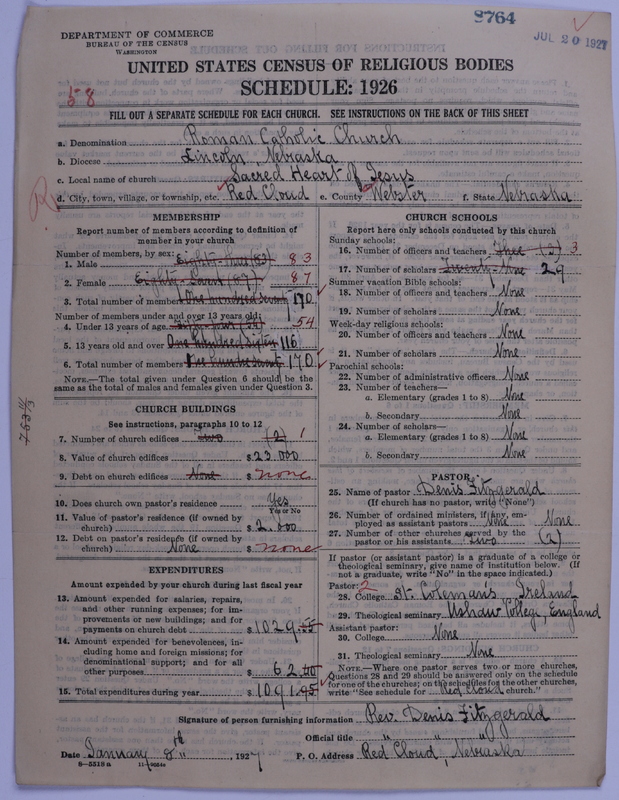 8764
JUL 20 1927
DEPARTMENT OF COMMERCE
BUREAU OF THE CENSUS
WASHINGTON
UNITED STATES CENSUS OF RELIGIOUS BODIES
SCHEDULE: 1926
58
FILL OUT A SEPARATE SCHEDULE FOR EACH CHURCH. SEE INSTRUCTIONS ON THE BACK OF THIS SHEET
a. Denomination Roman Catholic Church
b. Diocese Lincoln, Nebraska
c. Local name of church Sacred Heart of Jesus
d. City, town, village, or township, etc. Red Cloud e. County Webster f. State Nebraska
MEMBERSHIP
Report number of members according to definition of member in your church
Number of members, by sex:
1. Male Eighty-three (83) 83
2. Female 87
3. Total number of members One hundred seventy 170
Number of members under and over 13 years old:
4. Under 13 years of age 54
5. 13 years old and over One Hundred Sixteen 116
6. Total number of members One hundred seventy 170
NOTE.—The total given under Question 6 should be the same as the total of males and females given under Question 3.
CHURCH BUILDINGS
See instructions, paragraphs 10 to 12
7. Number of church edifices Two (2) 1
8. Value of church edifices $23.000
9. Debt on church edifices None $ none
10. Does church own pastor's residence Yes
Yes or No
11. Value of pastor's residence (if owned by church) $2.000
12. Debt on pastor's residence (if owned by church) None $ none
EXPENDITURES
Amount expended by your church during last fiscal year
13. Amount expended for salaries, repairs, and other running expenses; for improvements or new buildings; and for payments on church debt $1029.
14. Amount expended for benevolences, including home and foreign missions; for denominational support; and for all other purposes $62.
15. Total expenditures during year $1091.
CHURCH SCHOOLS
Report here only schools conducted by this church
Sunday schools:
16. Number of officers and teachers Three (3) 3
17. Number of scholars Twenty-Nine 29
Summer vacation Bible schools:
18. Number of officers and teachers None
19. Number of scholars None
Week-day religious schools:
20. Number of officers and teachers None
21. Number of scholars None
Parochial schools:
22. Number of administrative officers None
23. Number of teachers—
a. Elementary (grades 1 to 8) None
b. Secondary None
24. Number of scholars—
a. Elementary (grades 1 to 8) None
b. Secondary None
PASTOR
25. Name of pastor Denis Fitzgerald
(If church has no pastor, write "None")
26. Number of ordained ministers, if any, employed as assistant pastors None None
27. Number of other churches served by the pastor or his assistants Two (2)
If pastor (or assistant pastor) is a graduate of a college or theological seminary, give name of institution below. (If not a graduate, write "No" in the space indicated.)
Pastor: 2
28. College St. Coleman's Ireland
29. Theological seminary Ushaw College, England
Assistant pastor:
30. College None
31. Theological seminary None
NOTE.—Where one pastor serves two or more churches, Questions 28 and 29 should be answered only on the schedule for one of the churches; on the schedules for the other churches, write "See schedule for Red Cloud church."
Signature of person furnishing information Rev. Denis Fitzgerald
Official title " " "
Date January 8th, 1927 P. O. Address Red Cloud, Nebraska
8—5318 a